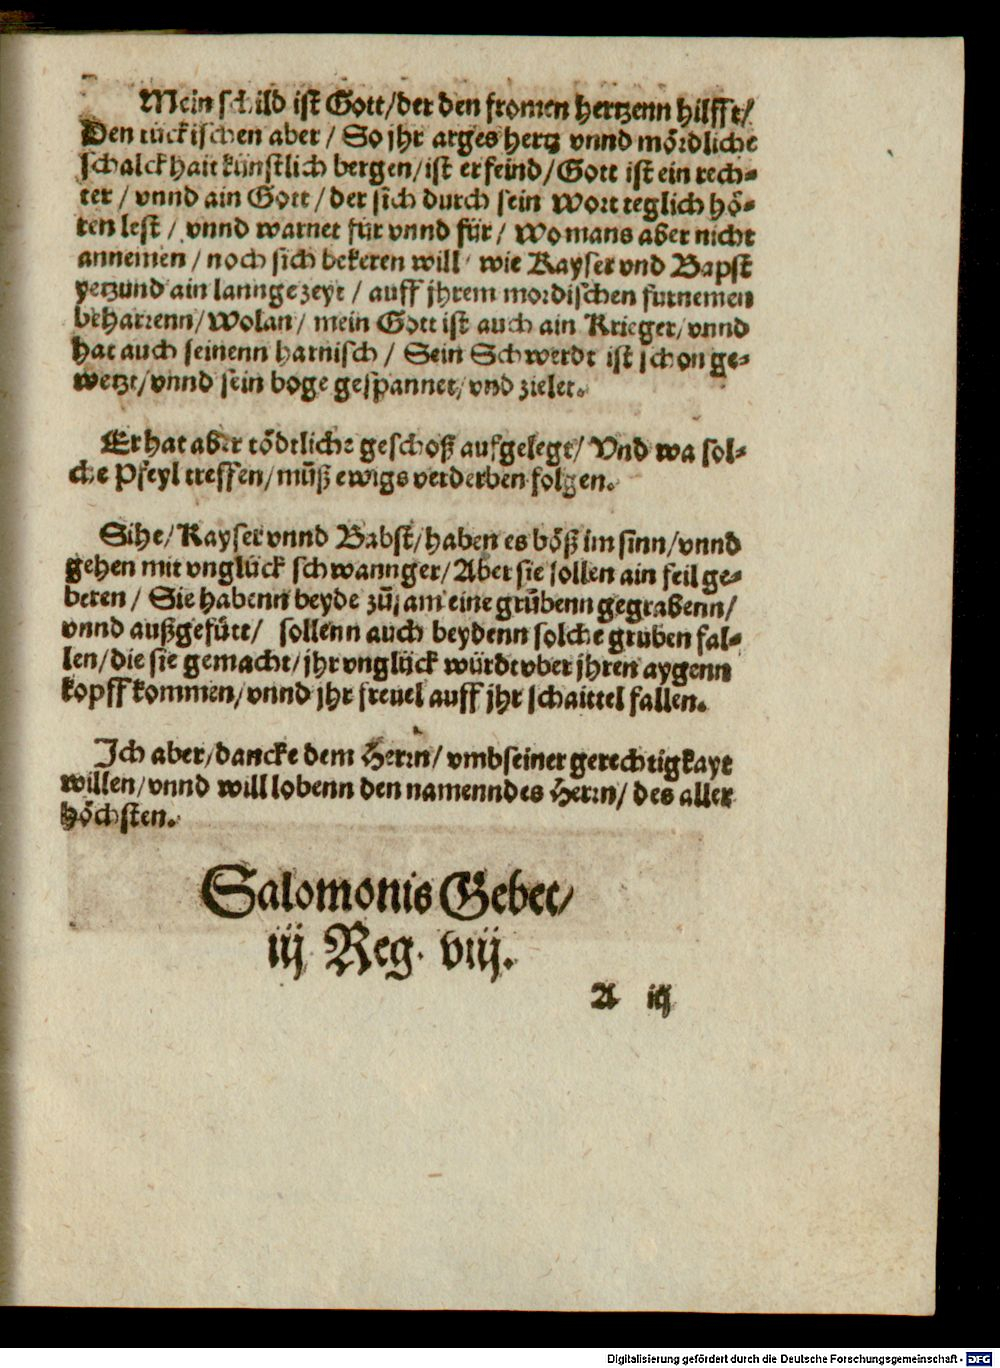 Mein schild ist Gott/der den fromen hertzenn hilfft/
Den tückischen aber / So jhr arges hertz vnnd mördliche
schalckhait künstlich bergen/ist er feind/Gott ist ein rech-
ter / vnnd ain Gott / der sich durch sein Wort teglich hö-
ren lest / vnnd warnet für vnnd für / Wo mans aber nicht
annemen / noch sich bekeren will/ wie Kayser vnd Bapst
yetzund ain lannge zeyt / auff jhrem mordischen furnemen
beharrenn/Wolan/ mein Gott ist auch ain Krieger/vnnd
hat auch seinenn harnisch / Sein Schwerdt ist schon ge-
wetzt/vnnd sein boge gespannet/vnd zielet.
Er hat aber tödtliche geschoß aufgelegt/ Vnd wa sol-
che Pfeyl treffen/müß ewigs verderben folgen.
Sihe/Kayser vnnd Babst/haben es böß im sinn/vnnd
gehen mit vnglück schwannger/Aber sie sollen ain feil ge-
beren / Sie habenn beyde züsam eine grübenn gegrabenn/
vnnd außgefürt/ sollenn auch beydenn solche gruben fal-
len/die sie gemacht/jhr vnglück würdt vber jhren aygenn
kopff kommen/vnnd jhr freuel auff jhr schaittel fallen.
Ich aber/dancke dem Herrn/ vmb seiner gerechtigkayt
willen/vnnd will lobenn den namenn des Herrn/ des aller
höchsten.
Salomonis Gebet/
iij Reg. viij.
A iij
Digitalisierung gefördert durch die Deutsche Forschungsgemeinschaft - DFG